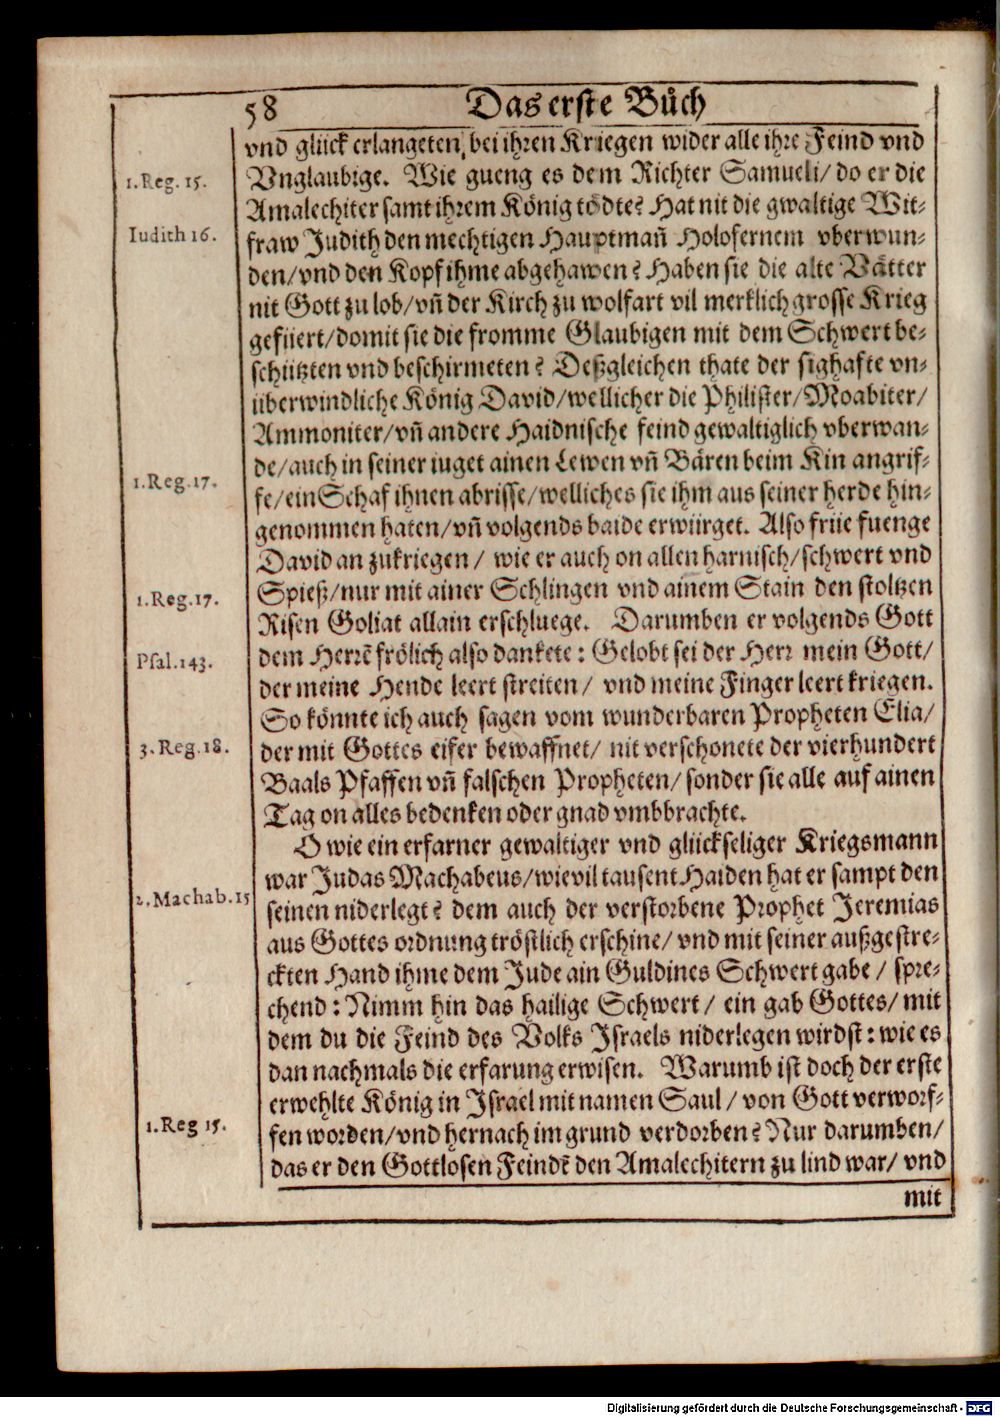 58
Das erste Bůch
vnd glück erlangeten, bei ihren Kriegen wider alle ihre Feind vnd
1.Reg. 15.
Vnglaubige. Wie gueng es dem Richter Samueli/ do er die
Amalechiter samt ihrem König tödte? Hat nit die gwaltige Wit⸗
Iudith 16.
fraw Judith den mechtigen Hauptmañ Holofernem vberwun⸗
den/ vnd den Kopf ihme abgehawen? Haben sie die alte Vätter
nit Gott zu lob/ vñ der Kirch zu wolfart vil merklich grosse Krieg
gefüert/ domit sie die fromme Glaubigen mit dem Schwert be⸗
schützten vnd beschirmeten? Deßgleichen thate der sighafte vn⸗
überwindliche König David/ wellicher die Philister/ Moabiter/
Ammoniter/ vñ andere Haidnische feind gewaltiglich vberwan⸗
de/ auch in seiner iuget ainen Lewen vñ Bären beim Kin angrif⸗
1.Reg.17.
fe/ ein Schaf ihnen abrisse/ welliches sie ihm aus seiner herde hin⸗
genommen haten/ vñ volgends baide erwürget. Also früe fuenge
David an zukriegen/ wie er auch on allen harnisch/ schwert vnd
1.Reg.17.
Spieß/ nur mit ainer Schlingen vnd ainem Stain den stoltzen
Risen Goliat allain erschluege. Darumben er volgends Gott
Psal.143.
dem Herrē frölich also dankete: Gelobt sei der Herr mein Gott/
der meine Hende leert streiten/ vnd meine Finger leert kriegen.
So könnte ich auch sagen vom wunderbaren Propheten Elia/
3.Reg.18.
der mit Gottes eifer bewaffnet/ nit verschonete der vierhundert
Baals Pfaffen vñ falschen Propheten/ sonder sie alle auf ainen
Tag on alles bedenken oder gnad vmbbrachte.
O wie ein erfarner gewaltiger vnd glückseliger Kriegsmann
war Judas Machabeus/ wievil tausent Haiden hat er sampt den
2.Machab.15
seinen niderlegt? dem auch der verstorbene Prophet Jeremias
aus Gottes ordnung tröstlich erschine/ vnd mit seiner außgestre⸗
ckten Hand ihme dem Jude ain Guldines Schwert gabe/ spre⸗
chend: Nimm hin das hailige Schwert/ ein gab Gottes/ mit
dem du die Feind des Volks Israels niderlegen wirdst: wie es
dan nachmals die erfarung erwisen. Warumb ist doch der erste
erwehlte König in Israel mit namen Saul/ von Gott verworf⸗
1.Reg 15.
fen worden/ vnd hernach im grund verdorben? Nur darumben/
das er den Gottlosen Feindē den Amalechitern zu lind war/ vnd
mit
Digitalisierung gefördert durch die Deutsche Forschungsgemeinschaft - DFG